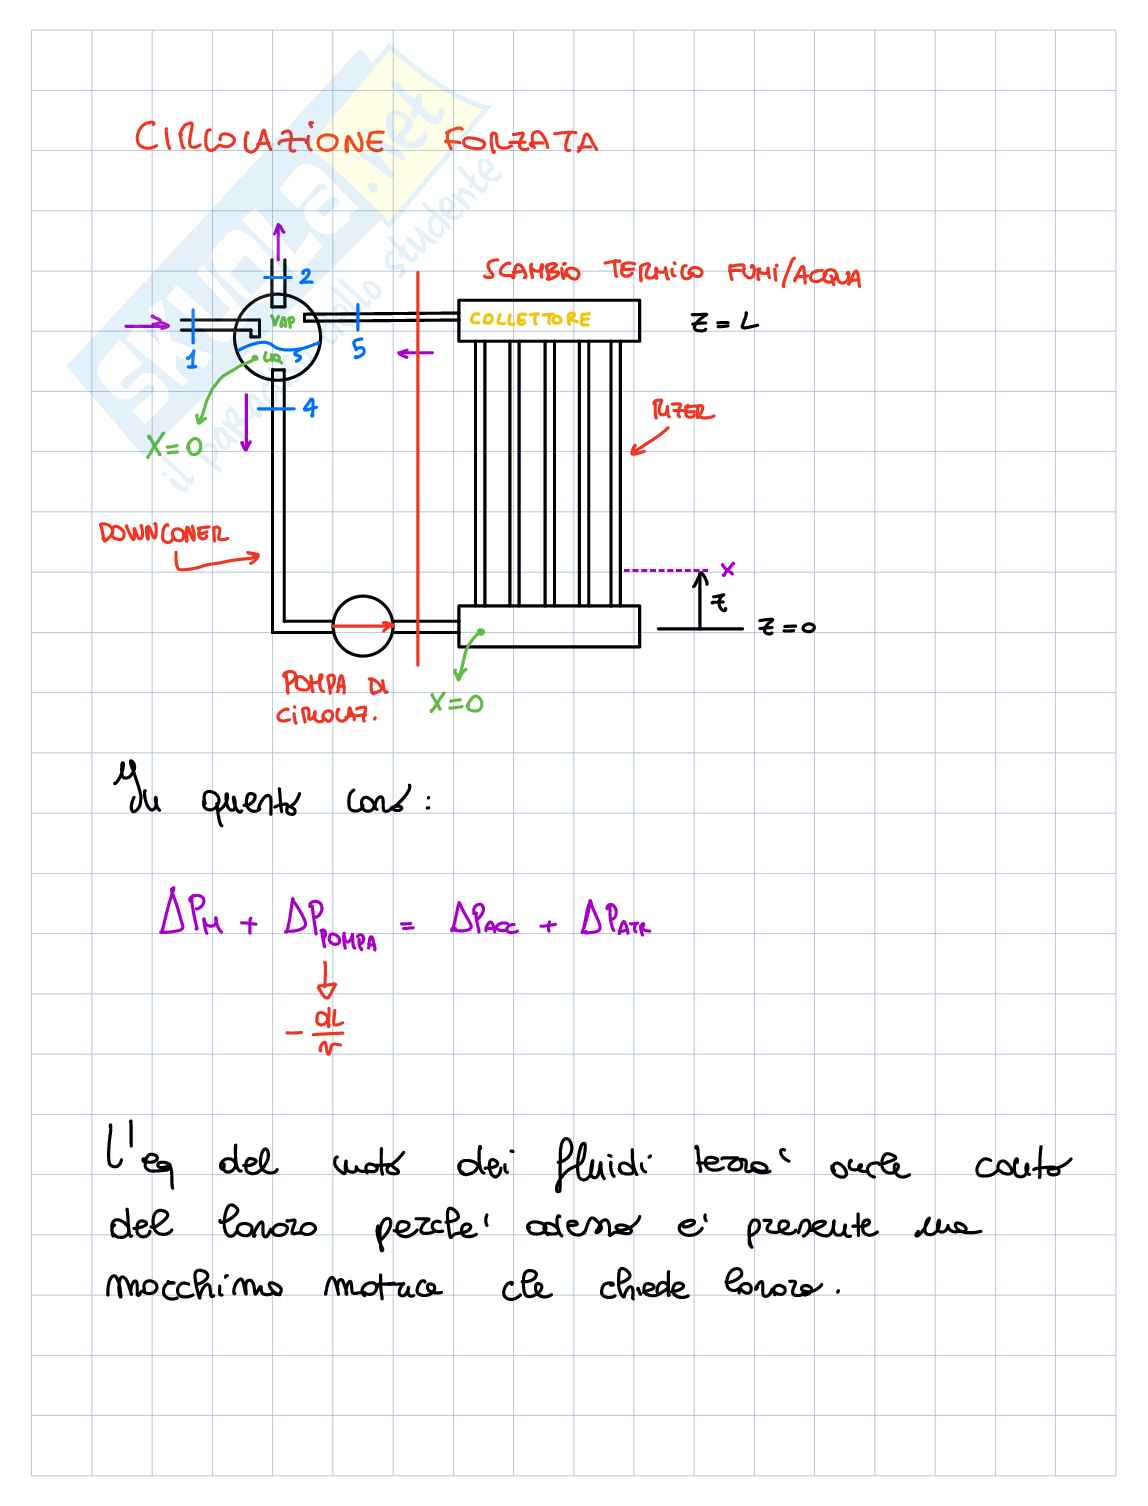 CIRCOLAZIONE FORZATA
SKUOLA.net
il paradiso dello studente
SCAMBIO TERMICO FUMI/ACQUA
2
VAP
COLLETTORE
Z = L
1
5
LIQ
3
4
RIZER
X=0
DOWNCOMER
X
Z
Z=0
POMPA DI
CIRCOLAZ.
X=0
In questo caso:
ΔPM + ΔPPOMPA = ΔPACC + ΔPATR
- dL/v
L'eq del moto dei fluidi terrà anche conto
del lavoro perchè adesso è presente una
macchina motrice che chiede lavoro.